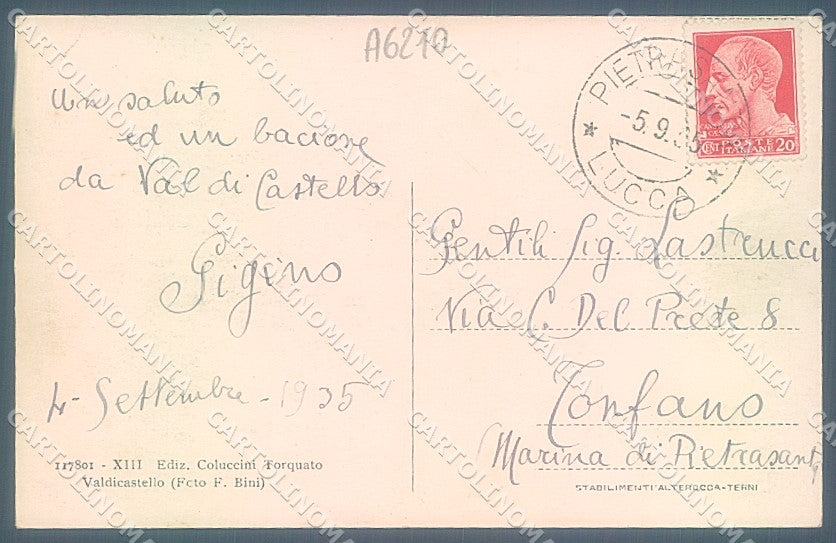 A6270
Un saluto
ed un bacione
da Val di Castello
Gigino
4 - Settembre - 1935
117801 - XIII Ediz. Coluccini Torquato
Valdicastello (Foto F. Bini)
PIETRASANTA
-5.9.35
* LUCCA *
CENT POSTE ITALIANE 20
Gentili Sig. Lastrucci
Via C. Del Prete 8
Tonfano
(Marina di Pietrasanta)
STABILIMENTI ALTEROCCA-TERNI
CARTOLINOMANIA